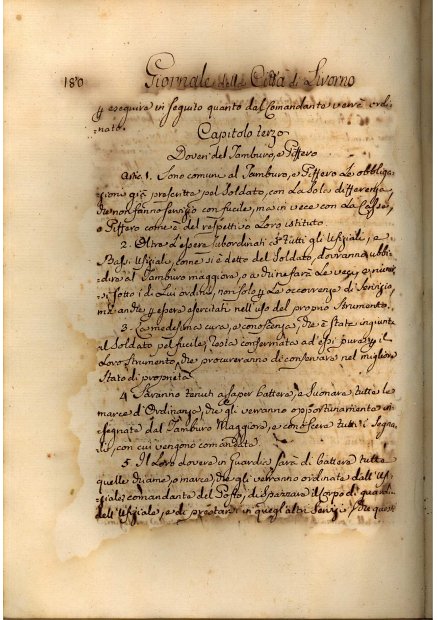 180 Giornale della Città di Livorno
p eseguire in seguito quanto dal Comandante verrà ordi-
nato.
Capitolo terzo
Doveri del Tamburo, e Piffero
Artic. 1. Sono comuni al Tamburo, e Piffero le obbliga-
zioni già prescritte pel Soldato, con la sola differenza,
che non fanno servizio con fucile, ma in vece con la Cassa,
o Piffero come è del respettivo Loro istituto.
2. Oltre l'essere subordinati a tutti gli Ufiziali, e
Bassi Ufiziali, come si è detto del Soldato, dovranno ubbi-
dire al Tamburo maggiore, o a chi ne farà le veci, e riunir-
si sotto i di Lui ordini, non solo p le occorrenze di Servizio,
ma anche p essere esercitati nell'uso del proprio Strumento.
3. La medesima cura, e conoscenza, che è stata ingiunta
al Soldato pel fucile, resta confermata ad essi pure pel
Loro strumento, che procureranno di conservare nel migliore
Stato di proprietà.
4. Saranno tenuti a saper battere, e suonare tutte le
marce d'Ordinanza, che gli verranno opportunamente in-
segnate dal Tamburo Maggiore, e conoscere tutti i segna-
li, con cui vengono comandate.
5. Il Loro dovere in Guardia sarà di battere tutte
quelle chiame, o marce, che gli verranno ordinate dall'Ufi-
ziale comandante del Posto, di spazzare il Corpo di guardia
dell'Ufiziale, e di prestarsi in quegl'altri Servizj, che questi